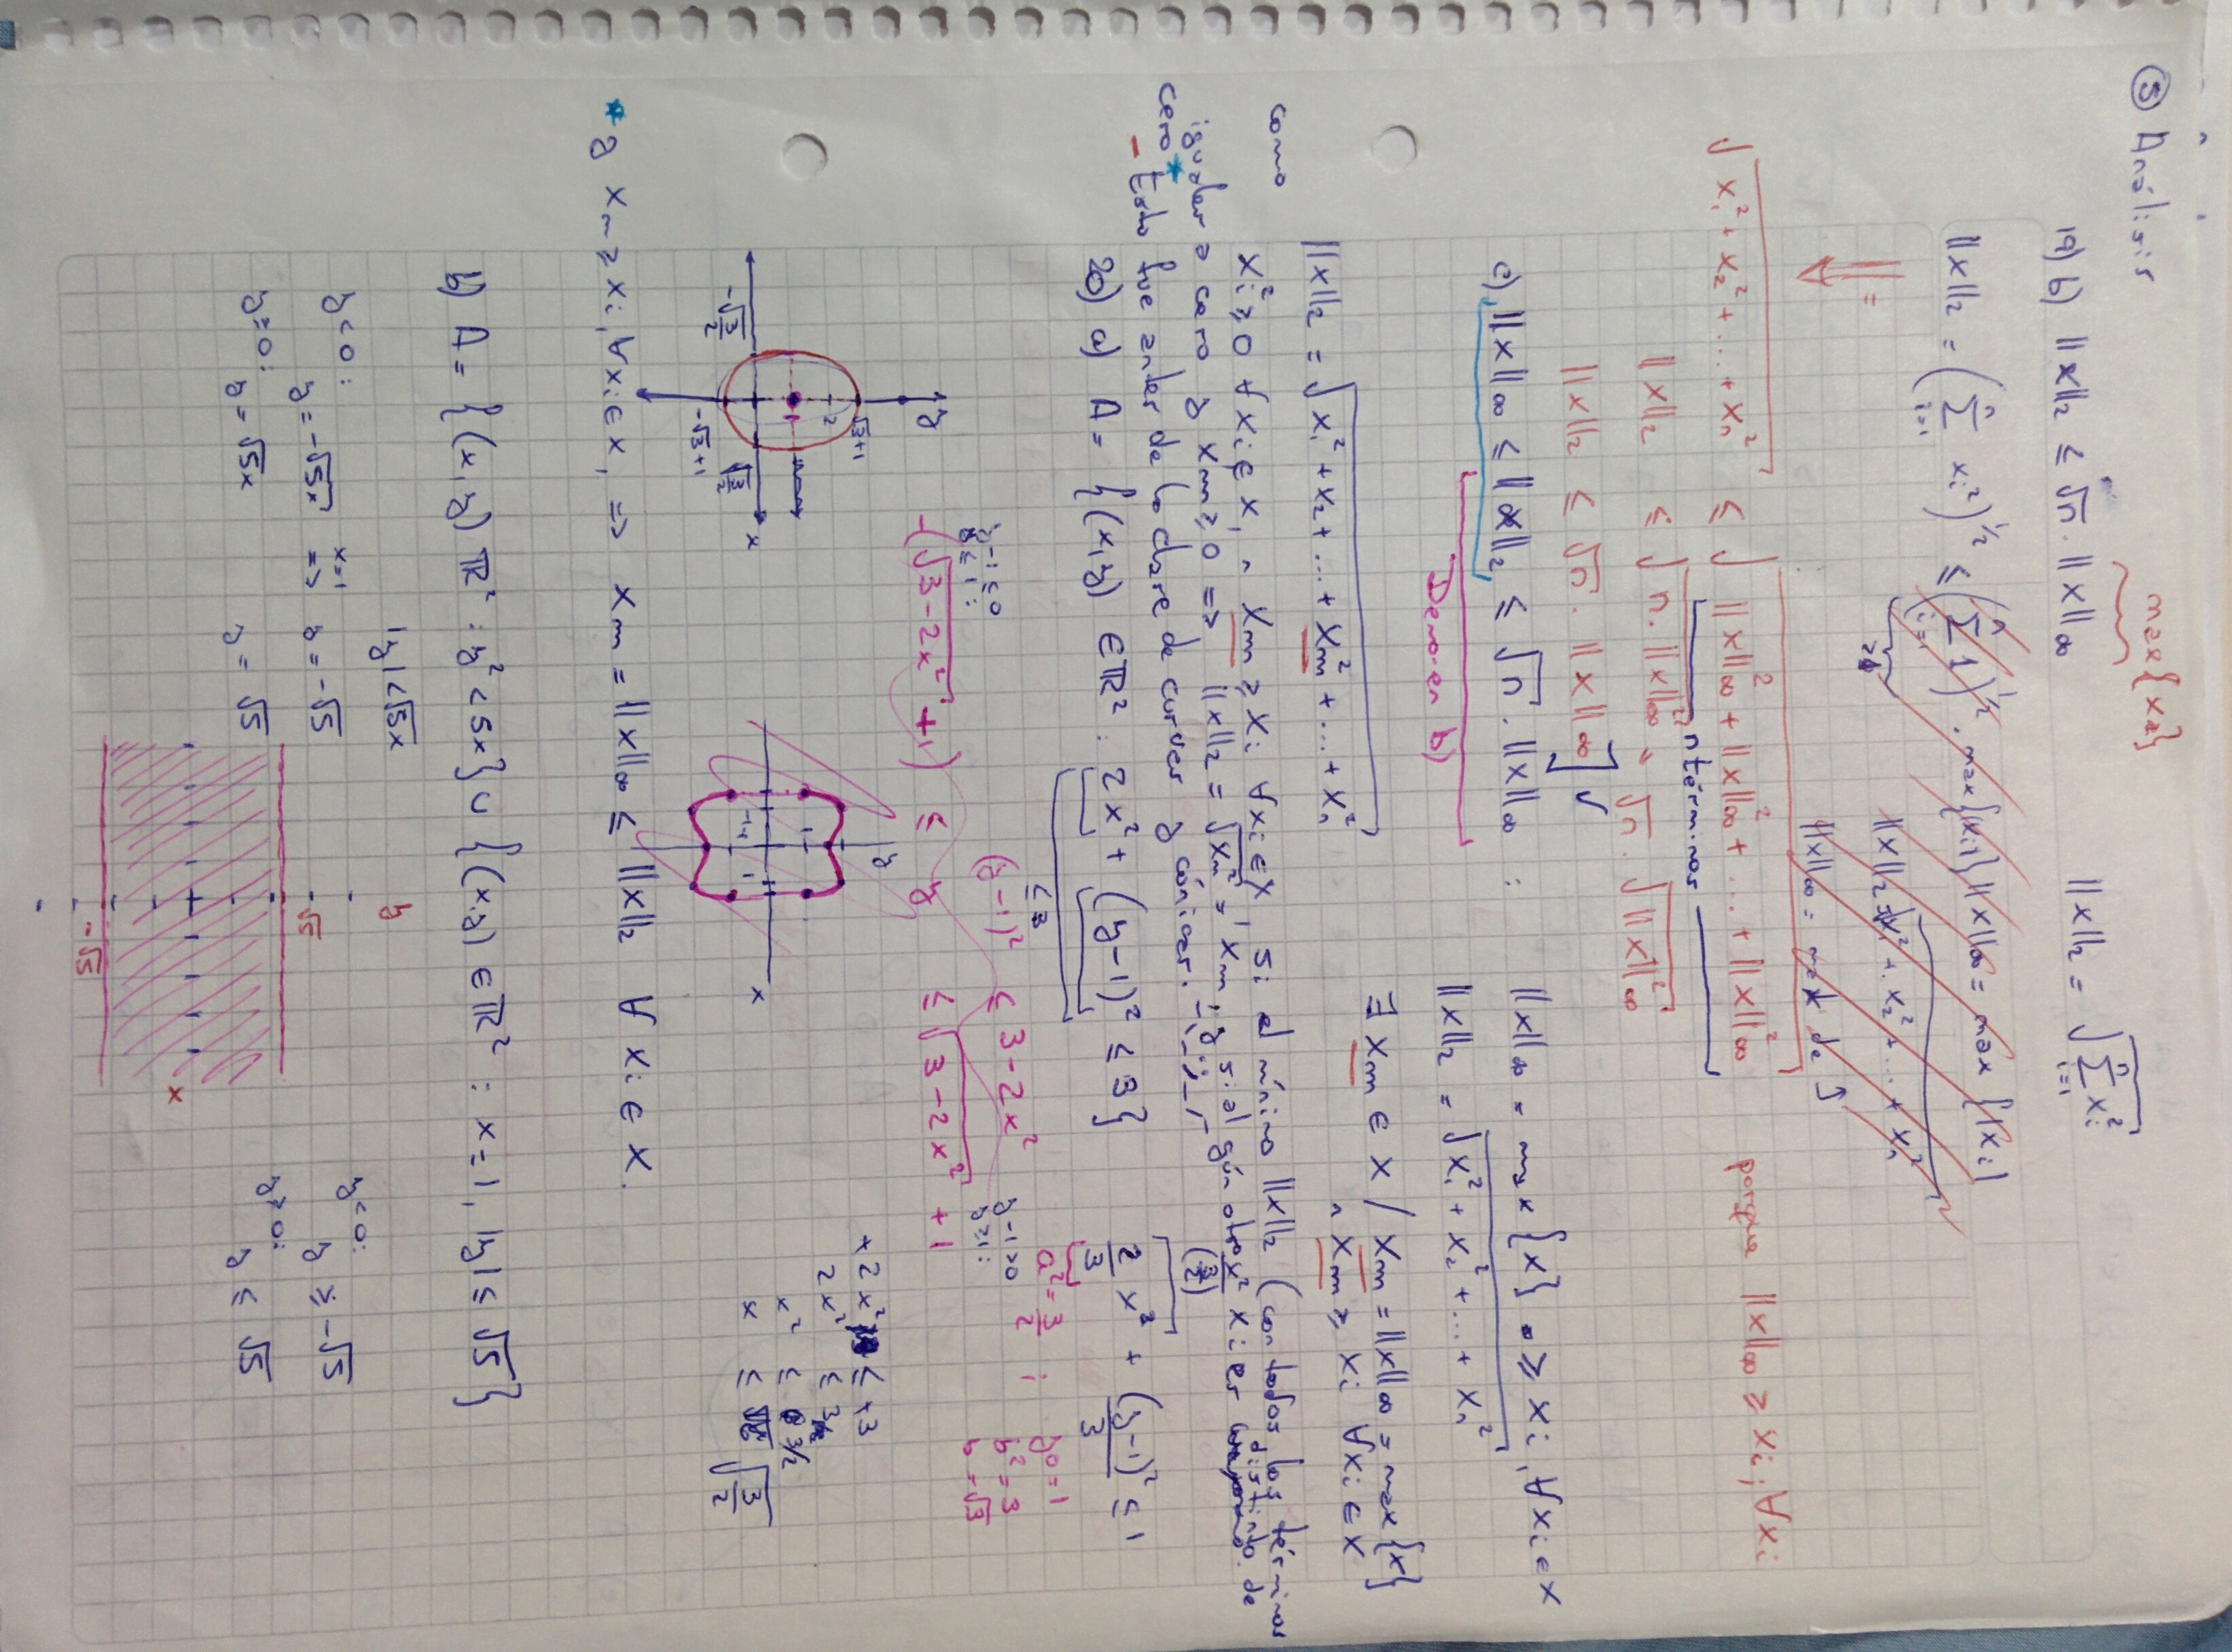 ⑤ Análisis
max{xi}
19) b) ||x||₂ ≤ √n . ||x||∞ ||x||₂ = √(∑ᵢ₌₁ⁿ xᵢ²)
||x||₂ = (∑ᵢ₌₁ⁿ xᵢ²)^½ ≤ (∑ᵢ₌₁ⁿ 1)^½ . max{|xᵢ|} ||x||∞ = max {|xᵢ|
||x||₂ = √(x₁² + x₂² + ... + xₙ²)
||x||∞ = max de
√(x₁² + x₂² + ... + xₙ²) ≤ √(||x||∞² + ||x||∞² + ... + ||x||∞²) porque ||x||∞ ≥ xᵢ ; ∀xᵢ
n términos
||x||₂ ≤ √(n . ||x||∞²) = √n . √(||x||∞²)
||x||₂ ≤ √n . ||x||∞ ] ✓
c) ||x||∞ ≤ ||x||₂ ≤ √n . ||x||∞ : ||x||∞ = max {x} ≥ xᵢ , ∀xᵢ ∈ x
Demo en b) ||x||₂ = √(x₁² + x₂² + ... + xₙ²)
∃ xₘ ∈ x / xₘ = ||x||∞ = max{x}
∧ xₘ ≥ xᵢ ∀xᵢ ∈ x
||x||₂ = √(x₁² + x₂ + ... + xₘ² + ... + xₙ²)
como xᵢ² ≥ 0 ∀xᵢ ∈ x, ∧ xₘ ≥ xᵢ ∀xᵢ ∈ x, si el mínimo ||x||₂ (con todos los términos
iguales a cero y xₘ ≥ 0 => ||x||₂ = √xₘ² = xₘ, y si algún otro xᵢ es distinto de
cero *
- Esto fue antes de la clase de curvas y cónicas.
x²/(3/2)
20) a) A = {(x,y) ∈ ℝ² : 2x² + (y-1)² ≤ 3} 2/3 x² + (y-1)²/3 ≤ 1
≤ 3
a² = 3/2 ; y₀ = 1
b² = 3
b = √3
(y-1)² ≤ 3-2x²
y-1 ≤ 0 y-1 > 0
y ≤ 1 : y ≥ 1 :
-(√(3-2x²) + 1) ≤ y ≤ √(3-2x²) + 1
y √3+1 2 1 x -√(3/2) √(3/2) -√3+1
y 1 -1 -1 1 x
+2x² ≤ +3
2x² ≤ 3
x² ≤ 3/2
x ≤ √(3/2)
* y xₘ ≥ xᵢ, ∀xᵢ ∈ x, => xₘ = ||x||∞ ≤ ||x||₂ ∀ xᵢ ∈ x.
b) A = {(x,y) ℝ² : y² < 5x} ∪ {(x,y) ∈ ℝ² : x = 1, |y| ≤ √5}
|y| < √5x
y < 0 : y = -√5x x=1 => y = -√5
y ≥ 0 : y = √5x y = √5
y √5 x -√5
y < 0 : y ≥ -√5
y ≥ 0 : y ≤ √5